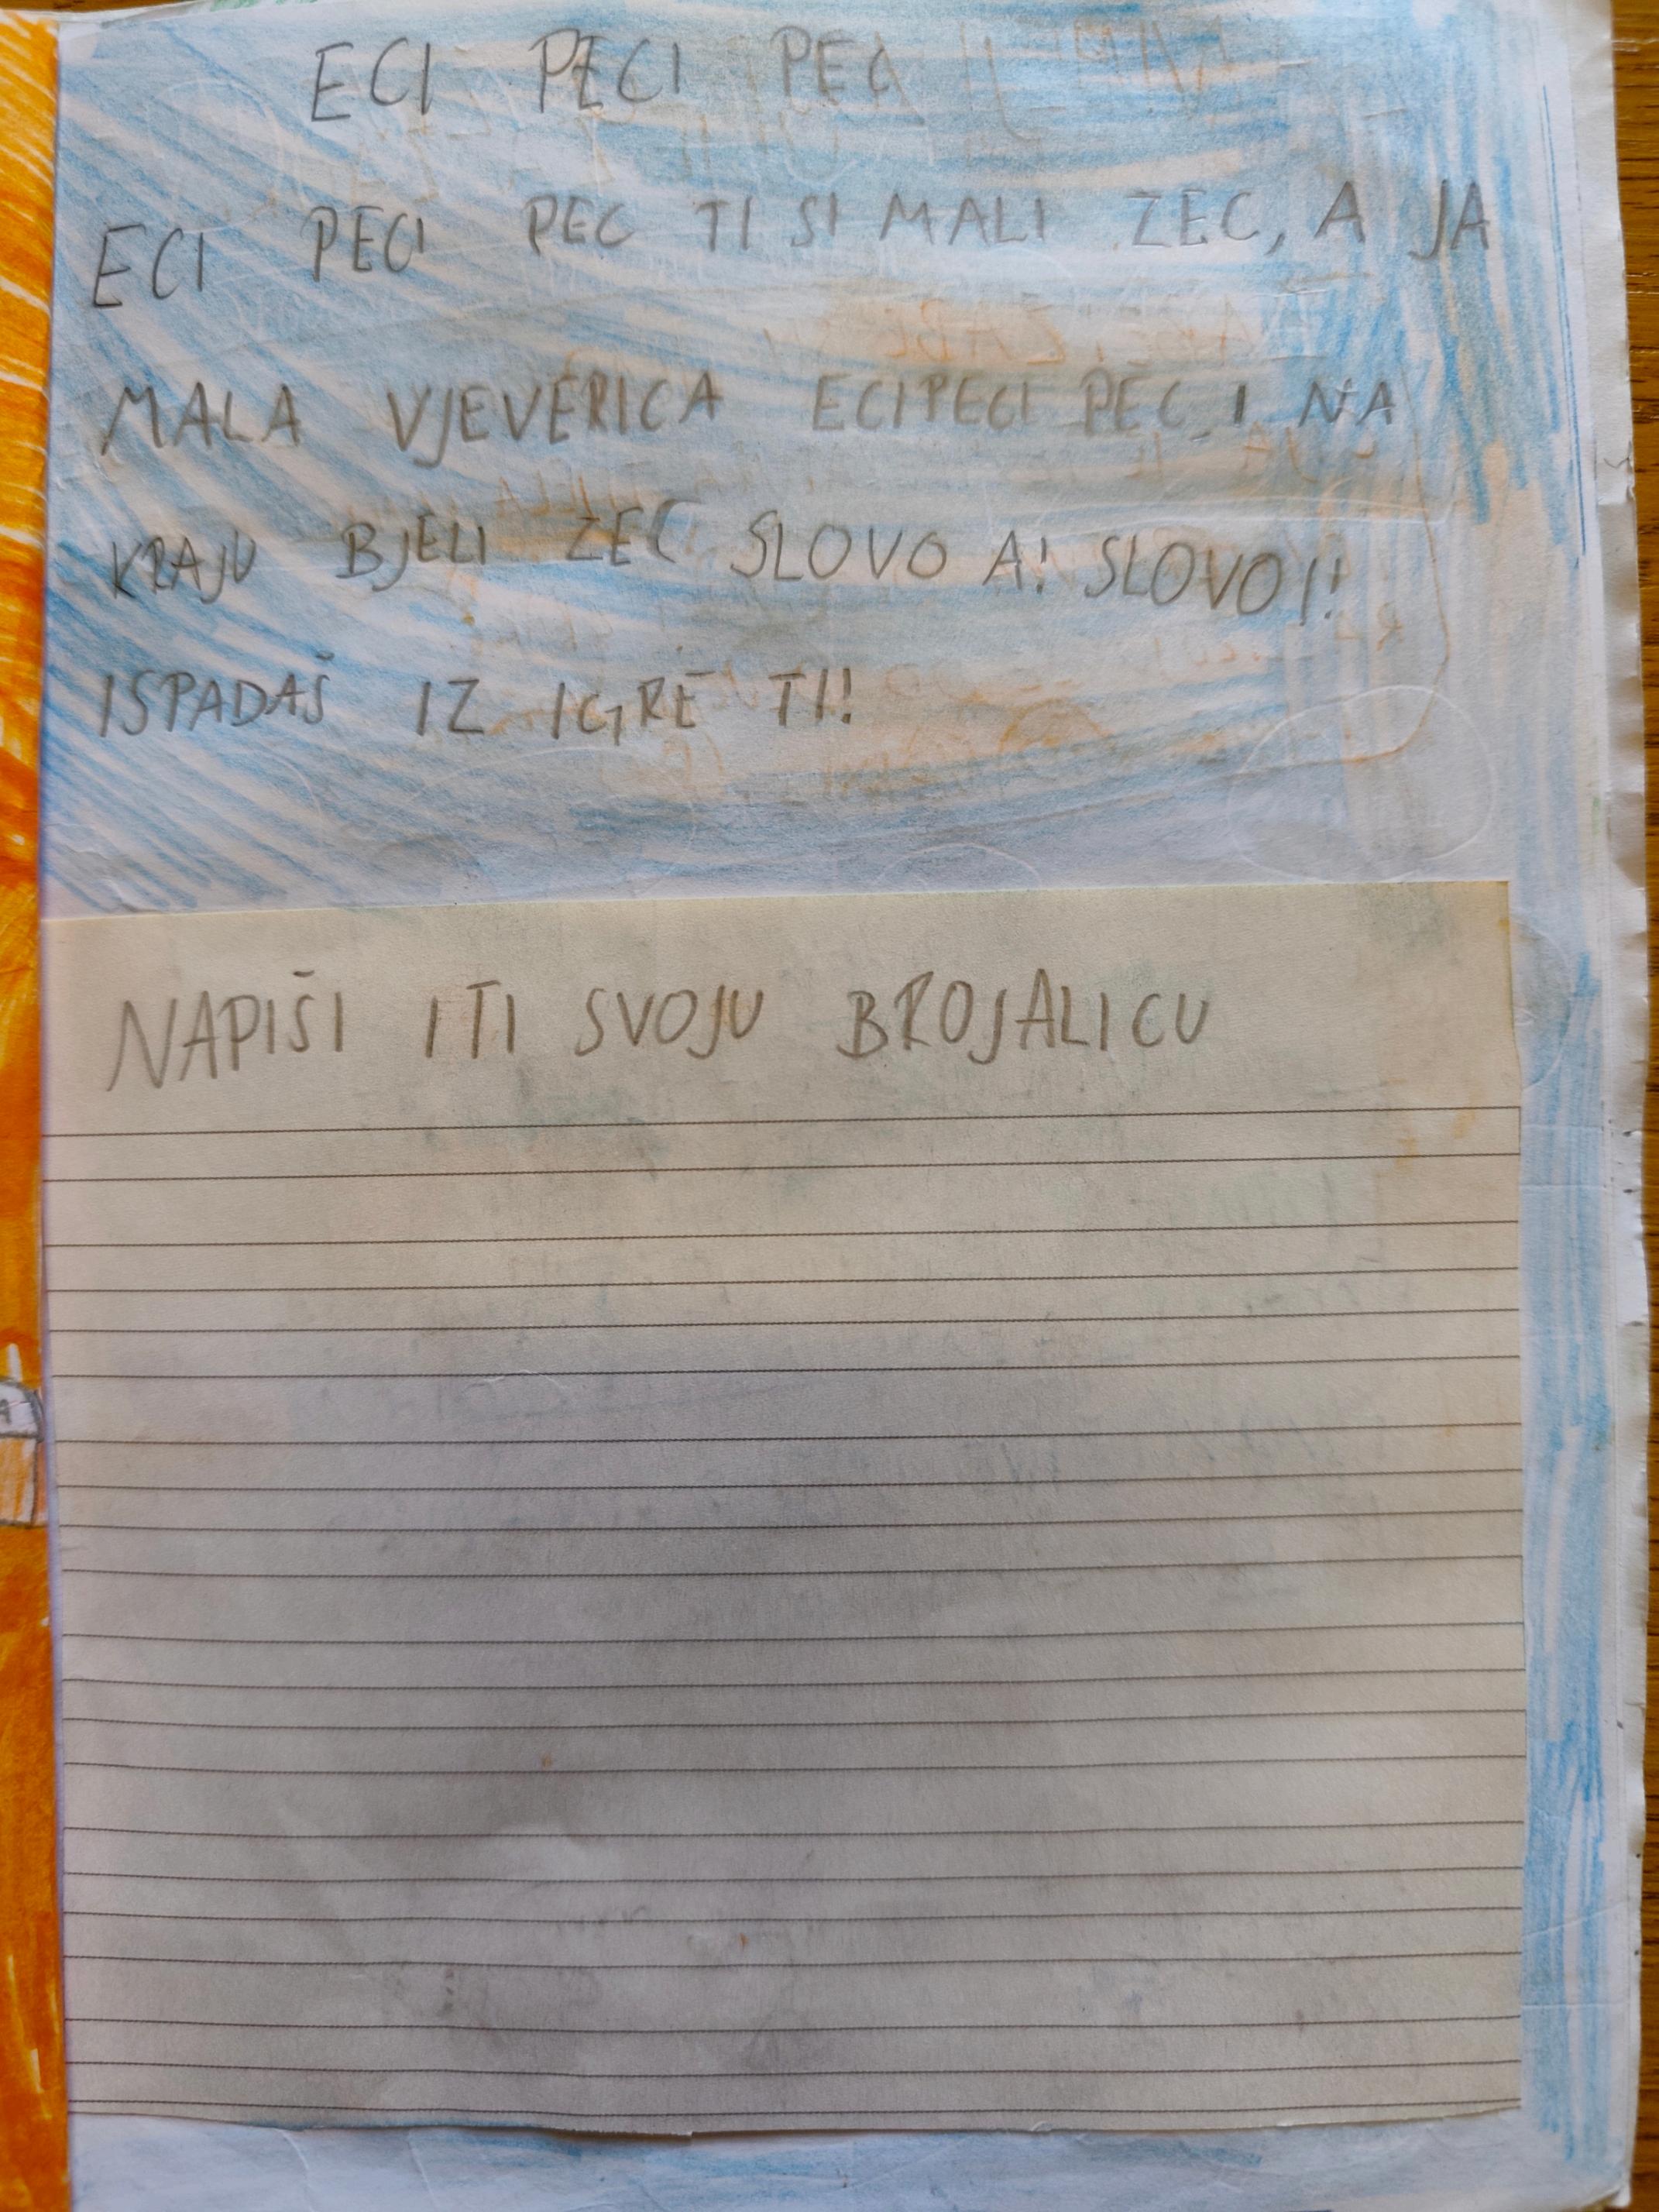 ECI PECI PEC
ECI PECI PEC TI SI MALI ZEC, A JA
MALA VJEVERICA ECI PECI PEC, I NA
KRAJU BJELI ZEC SLOVO A! SLOVO I!
ISPADAŠ IZ IGRE TI!
NAPIŠI I TI SVOJU BROJALICU